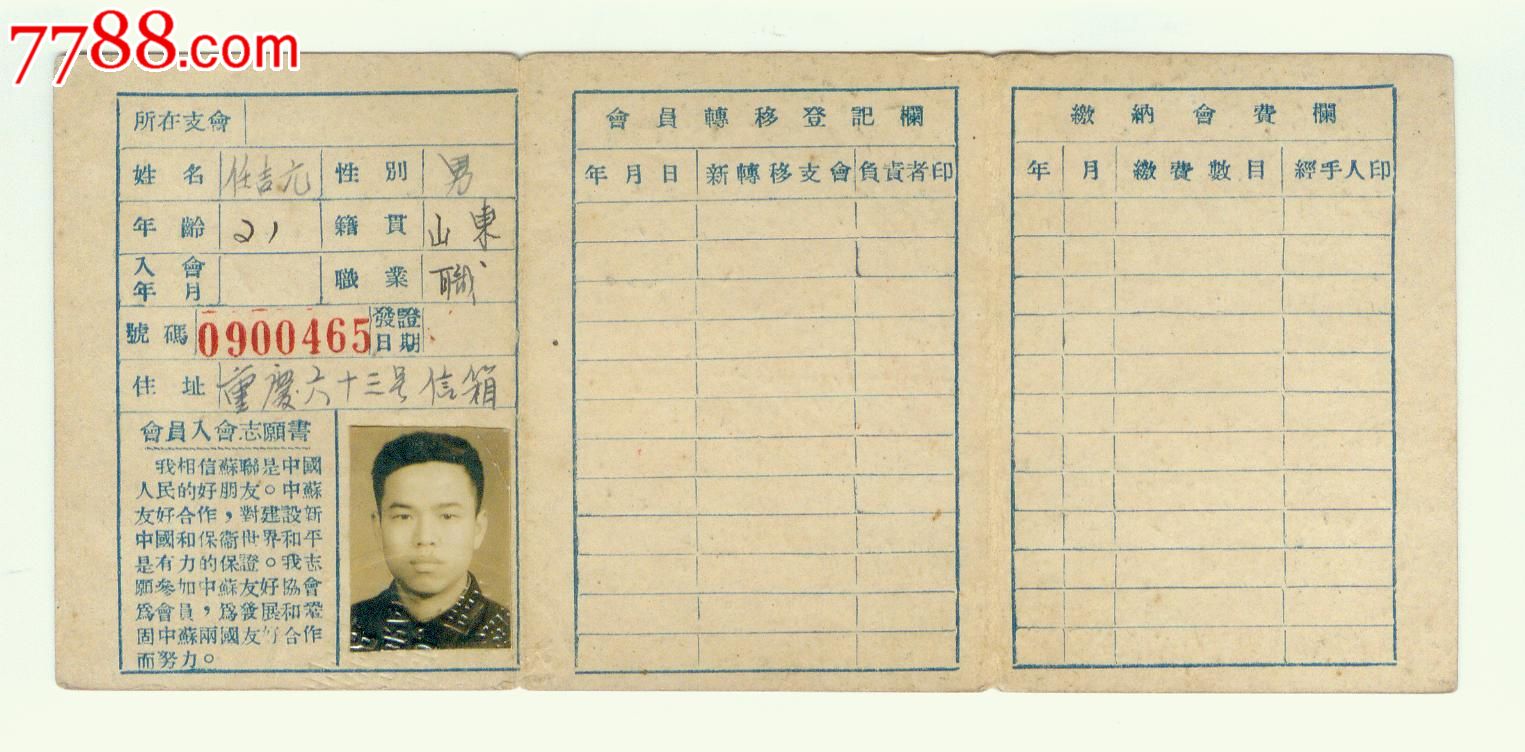 7788.com
所在支會
姓名 任吉元 性別 男
年齡 21 籍貫 山東
入會年月 職業 職
號碼 0900465 發證日期
住址 重慶六十三号信箱
會員入會志願書
我相信蘇聯是中國
人民的好朋友。中蘇
友好合作，對建設新
中國和保衞世界和平
是有力的保證。我志
願參加中蘇友好協會
爲會員，爲發展和鞏
固中蘇兩國友好合作
而努力。
會員轉移登記欄
年月日 新轉移支會 負責者印
繳納會費欄
年 月 繳費數目 經手人印